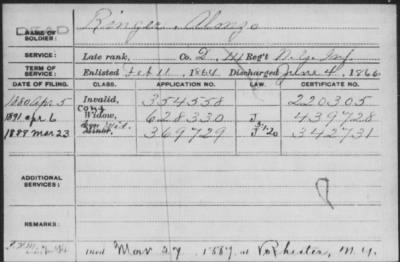 DEAD
NAME OF SOLDIER: Ringer, Alonzo
SERVICE: Late rank, Co. D, 14 Reg't N.Y. Inf.
TERM OF SERVICE: Enlisted Feb 11, 1864 Discharged June 4, 1866
DATE OF FILING. CLASS. APPLICATION NO. LAW. CERTIFICATE NO.
1880 Apr. 5 Invalid, 354558 220305
1891 Apr 6 Cont Widow, 628330 J 439728
1888 Mar 23 Minor, 369729 342731
ADDITIONAL SERVICES:
REMARKS:
Died Mar 27, 1887 at Rochester, N.Y.